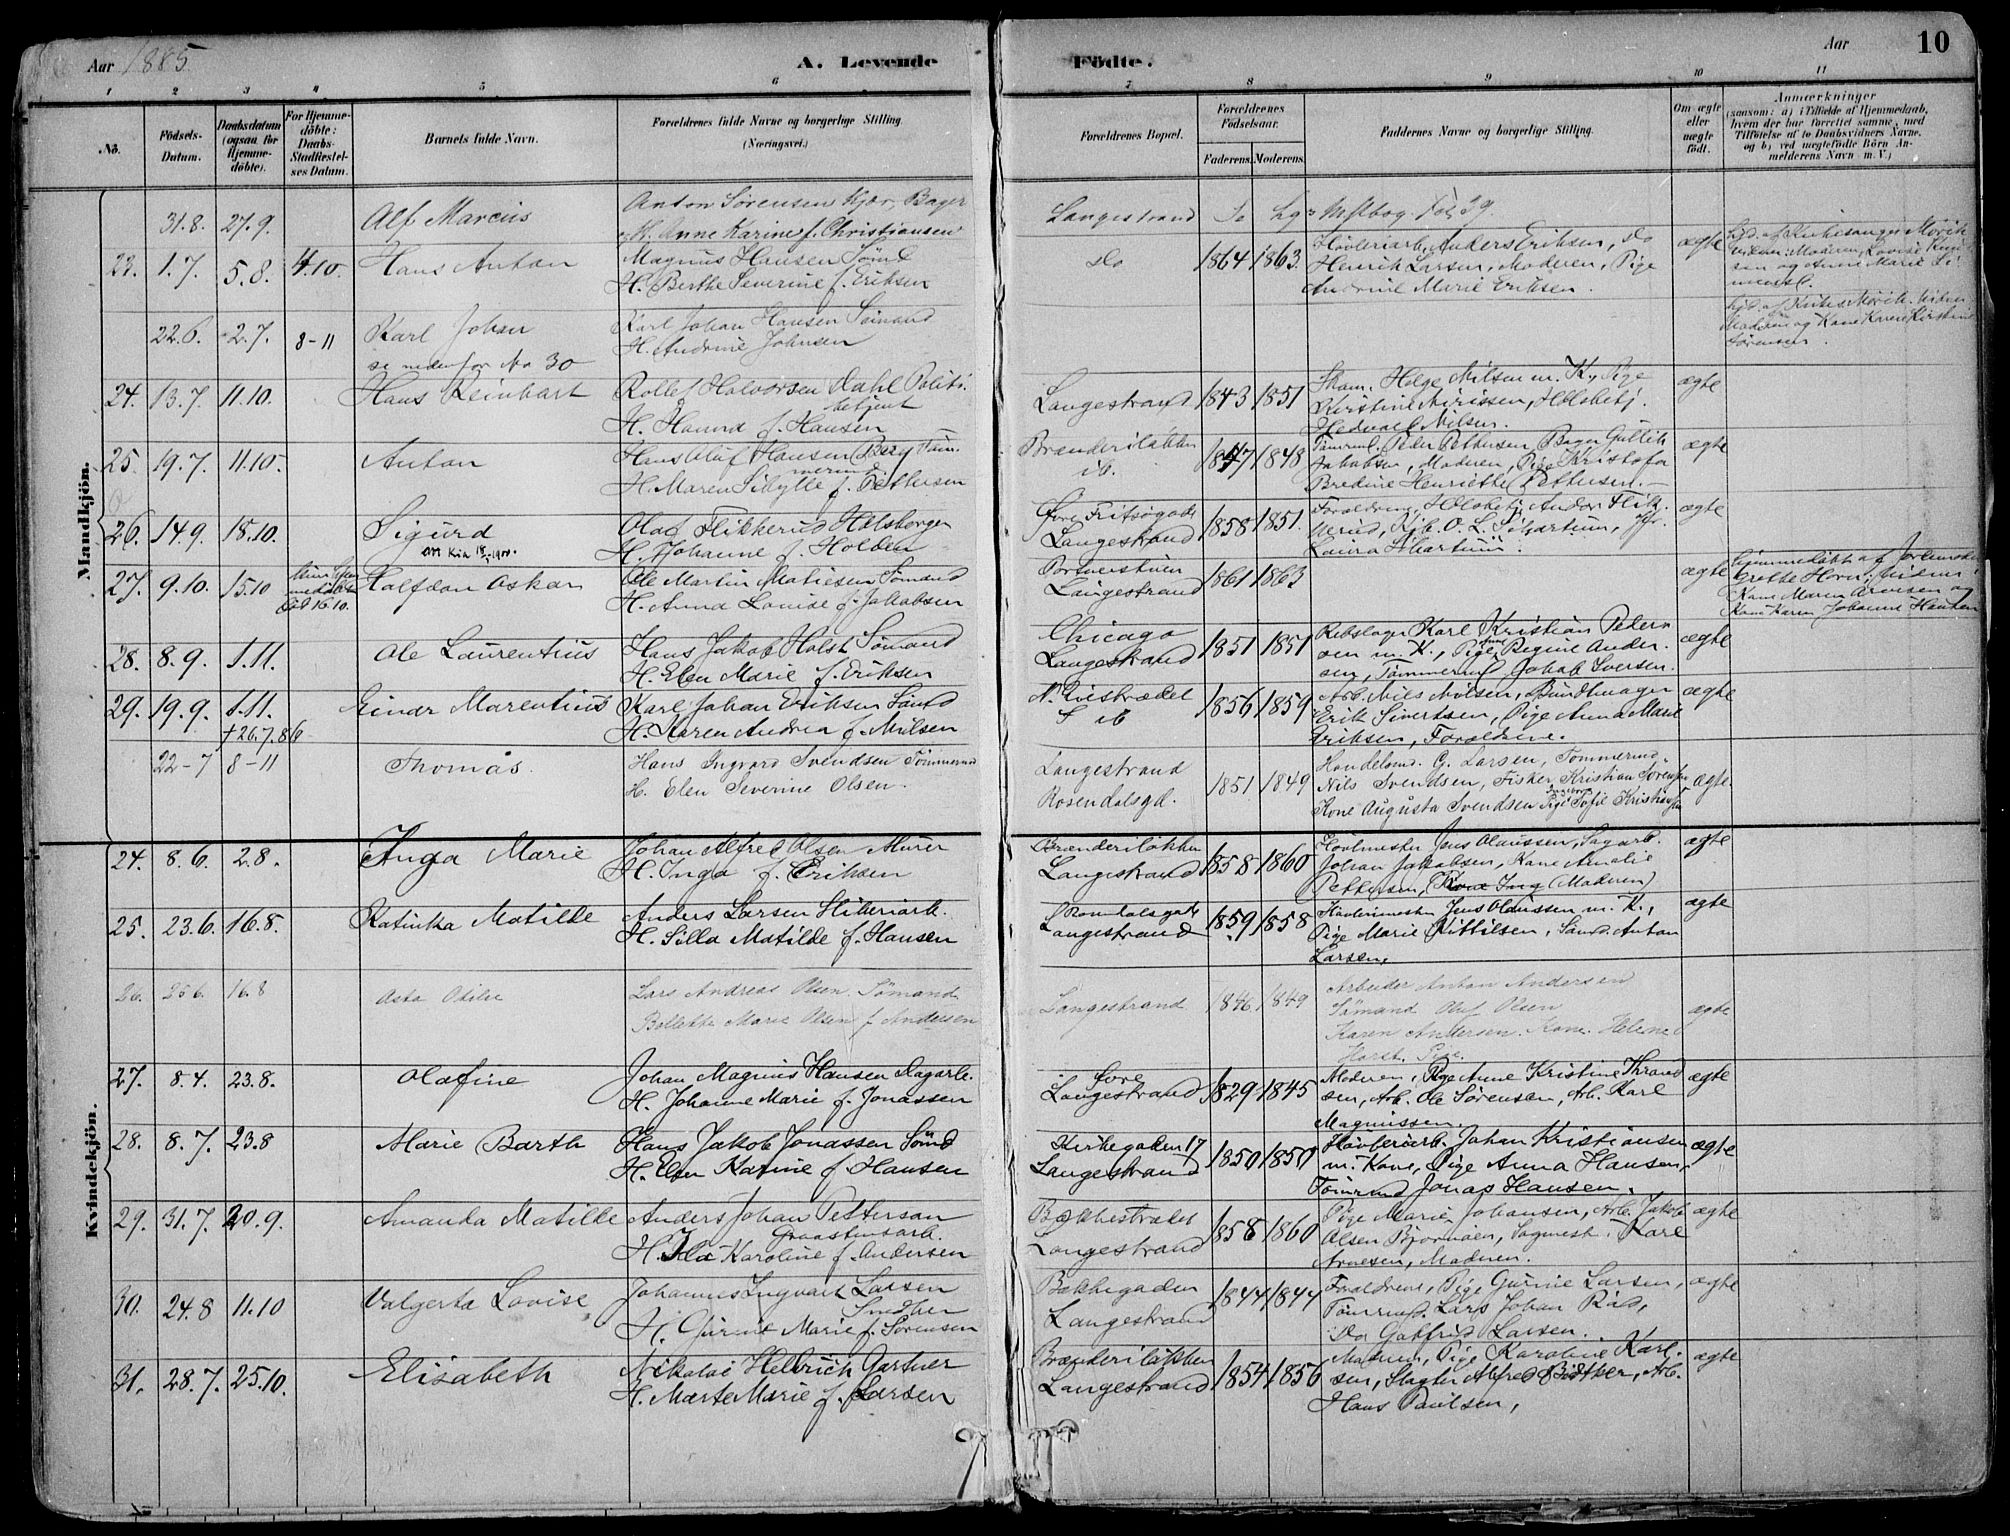 Aar 1885.
A. Levende
Födte.
Aar
10
1 2 3 4 5 6 7 8 9 10 11
No.
Födsels-
Datum.
Daabsdatum
(ogsaa for
Hjemme-
döbte).
For Hjemme-
döbte:
Daabs-
Stadfæstel-
ses Datum.
Barnets fulde Navn.
Forældrenes fulde Navne og borgerlige Stilling.
(Næringsvei.)
Forældrenes Bopæl.
Forældrenes
Födselsaar.
Faderens. Moderens.
Faddernes Navne og borgerlige Stilling.
Om ægte
eller
uægte
födt.
Anmærkninger
(saasom: a) i Tilfælde af Hjemmedaab,
hvem der har forrettet samme, med
Tilföielse af to Daabsvidners Navne,
og b) ved uægtefödte Börn An-
melderens Navn m. V.)
Mandkjön.
31.8. 27.9. Alf Marcus
Anton Sørensen Kjær, Bager
Anne Karine f. Christiansen
Langestrand
23. 1.7. 5.8. 4.10. Hans Anton
Magnus Hansen Sömd
H. Berthe Severine f. Eriksen
do 1864 1863.
Høvleriarb. Anders Eriksen, do
Henrik Larsen, Moderen, Pige
Andrine Marie Eriksen.
ægte
22.6. 2.7. 8-11 Karl Johan
se nedenfor No 30
Karl Johan Hansen Sömand
H. Andrine Johnsen
24. 13.7. 11.10. Hans Reinhart
Rollef Halvorsen Dahl Politi-
betjent
H. Hanna f. Hansen
Langestrand 1843 1851
Skom. Helge Nilsen m. K., Pige
Hedval Nilsen.
ægte
25. 19.7. 11.10. Anton
Hans Olaf Hansen Berg Töm-
mermd.
H. Maren Sibylle f. Pettersen
Brænderiløkken
ib. 1847 1848
Tömrmd. Peder Pettersen, Bager Gullik
Jakobsen, Moderen, Pige Kristofa
Bredine Henriette Pettersen.
ægte
26. 14.9. 18.10. Sigurd
Olaf Flikkerud
H. Johanne f. Holden
Øvre Fritsøgade
Langestrand 1858 1851.
Laura Martinii.
ægte
27. 9.10. 15.10 Halfdan Oskar
Ole Martin Matiesen Sömand
H. Anna Louise f. Jakobsen
Langestrand 1861 1863
ægte
Kone Maren Arvesen og
Kone Karen Johanne Hansen
28. 8.9. 1.11. Ole Laurentius
Hans Jakob Holst Sömand
H. Elen Marie f. Eriksen
Chicago
Langestrand 1851 1851
Rebslager Karl Kristian Peder-
sen m. K., Pige Anne Regine Ander-
sen, Tömmermd Jakob Iversen.
ægte
29. 19.9. 1.11. Einar Marentius
† 26.7.86
Karl Johan Eriksen Sömd
H. Karen Andrea f. Nilsen
ib 1856 1859
Arb. Nils Nilsen, Bundtmager
Erik Sivertsen, Pige Anna Marie
Eriksen, Forældrene.
ægte
22-7 8-11 Thomas.
Hans Ingvard Svendsen Tömmermd
H. Elen Severine Olsen.
Langestrand
Rosendalsgd. 1851 1849
Handelsmd. G. Larsen, Tömmermd.
Nils Svendsen, Fisker Kristian Sørensen
Kone Augusta Svendsen Pige Ingeborg Sofie Kristians
ægte.
Kvindekjön.
24. 8.6. 2.8. Inga Marie
Johan Alfred Olsen Murer
H. Inga f. Eriksen
Brænderiløkken
Langestrand 1858 1860
Høvlmester Jens Olaussen, Sagarb.
Johan Jakobsen, Kone Amalie
Pettersen, (Moderen)
ægte
25. 23.6. 16.8. Katinka Matilde
Anders Larsen
H. Silla Matilde f. Hansen
Langestrand 1859 1858
Høvlerimester Jens Olaussen m. K.,
Pige Marie Kittilsen, Sömd. Anton
Larsen.
ægte
26. 25.6. 16.8 Asta Otilie
Lars Andreas Olsen Sömand
Bollette Marie Olsen f Andersen
Langestrand 1846 1849
Arbeider Anton Andersen
Sömand Oluf Olsen
Karen Andersen. Kone. Helene
Horst. Pige.
ægte
27. 8.4. 23.8. Olafine
Johan Magnus Hansen Dagarb.
H. Johanne Marie f. Jonassen
Øvre
Langestrand 1829 1845
Moderen, Pige Anne Kristine Thrond-
sen, Arb. Ole Sørensen, Arb. Karl
Magnussen.
ægte
28. 8.7. 23.8 Marie Barth
Hans Jakob Jonassen Sömd
H. Elen Karine f. Hansen
Kirkegaden 17
Langestrand 1850 1850
Høvleriarb. Johan Kristiansen
m. Kone, Pige Anna Hansen,
Tömrmd Jonas Hansen.
ægte
29. 31.7. 20.9. Amanda Matilde
Anders Johan Petterson
Graastensarb.
H. Ida Karoline f. Andersen
Bakkestrædet
Langestrand 1858 1860
Pige Marie Johansen, Arb. Jakob
Olsen Bjørnøen, Sagmest. Karl
Arvesen, Moderen.
ægte
30. 24.8 11.10 Valgerta Lovise
Johannes Ingvart Larsen
H. Gurine Marie f. Sørensen
Bakkegaden
Langestrand 1844 1844
Forældrene, Pige Gurine Larsen,
Tömrmd. Lars Johan
Do Gotfrid Larsen.
ægte
31. 28.7. 25.10. Elisabeth
Nikolai Hellrich Gartner
H. Marte Marie f. Larsen
Brænderiløkken
Langestrand 1854 1856
Moderen, Pige Karoline Karl-
sen, Slagter Alfred Bödtker, Arb.
Hans Paulsen,
ægte